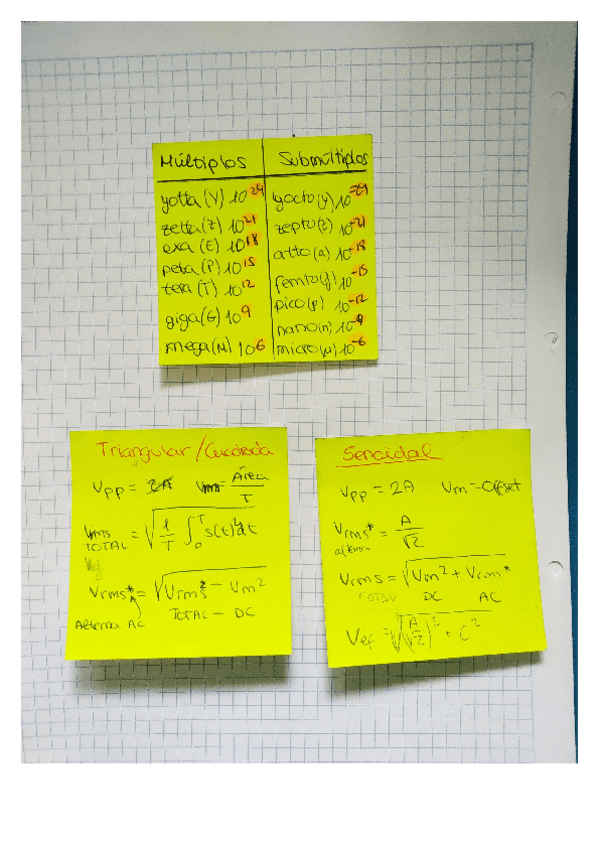 Múltiplos Submúltiplos
yotta (Y) 10^24 yocto (y) 10^-24
zetta (Z) 10^21 zepto (z) 10^-21
exa (E) 10^18 atto (a) 10^-18
peta (P) 10^15 femto (f) 10^-15
tera (T) 10^12 pico (p) 10^-12
giga (G) 10^9 nano (n) 10^-9
mega (M) 10^6 micro (μ) 10^-6
Triangular / Cuadrada
Vpp = 2A Vm = Área/T
Vrms TOTAL = √(1/T ∫₀ᵀ s(t)² dt)
Vrms* = √(Vrms² - Vm²)
Alterna AC TOTAL - DC
Senoidal
Vpp = 2A Vm = Offset
Vrms* = A/√2
alterna
Vrms = √(Vm² + Vrms*)
TOTAL DC AC
Vef = √((A/√2)² + C²)